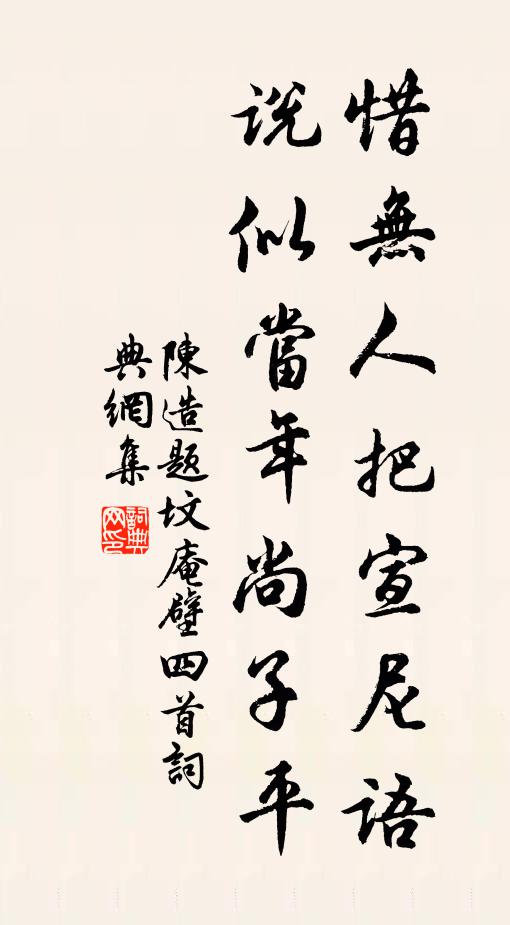 惜無人把宣尼語
說似當年尚子平
陳造題坟庵壁四首詞
典網集
詞典网印